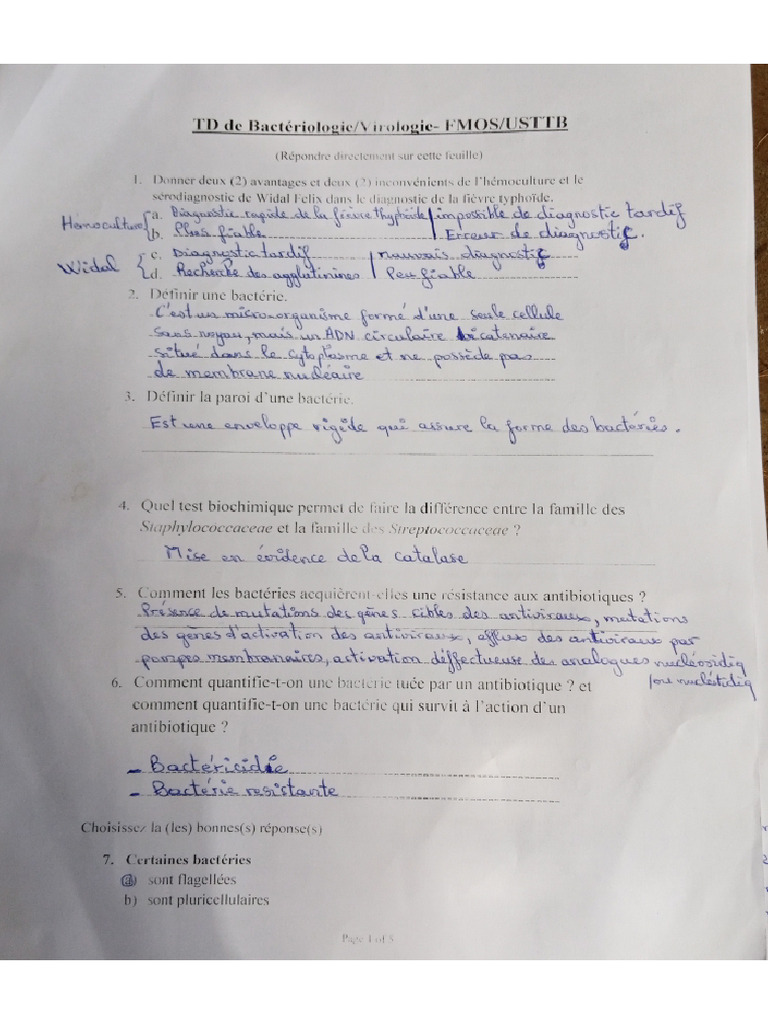 TD de Bactériologie/Virologie- FMOS/USTTB
(Répondre directement sur cette feuille)
1. Donner deux (2) avantages et deux (2) inconvénients de l'hémoculture et le
sérodiagnostic de Widal Felix dans le diagnostic de la fièvre typhoïde.
Hémoculture { a. Diagnostic rapide de la fièvre thyphoïde / impossible de diagnostic tardif
b. Plus fiable / Erreur de diagnostic.
Widal { c. Diagnostic tardif / mauvais diagnostic
d. Recherche des agglutinines / Peu fiable
2. Définir une bactérie.
C'est un micro-organisme formé d'une seule cellule
sans noyau, mais un ADN circulaire bicatenaire
situé dans le cytoplasme et ne possède pas
de membrane nucléaire
3. Définir la paroi d'une bactérie.
Est une enveloppe rigide qui assure la forme des bactéries.
4. Quel test biochimique permet de faire la différence entre la famille des
Staphylococcaceae et la famille des Streptococcaceae ?
Mise en évidence de la catalase
5. Comment les bactéries acquièrent-elles une résistance aux antibiotiques ?
Présence de mutations des gênes cibles des antiviraux, mutations
des gênes d'activation des antiviraux, efflux des antiviraux par
pompes membranaires, activation déffectueuse des analogues nucléosidiq
/ou nucléotidiq
6. Comment quantifie-t-on une bactérie tuée par un antibiotique ? et
comment quantifie-t-on une bactérie qui survit à l'action d'un
antibiotique ?
- Bactéricidie
- Bactérie resistante
Choisissez la (les) bonnes(s) réponse(s)
7. Certaines bactéries
a) sont flagellées
b) sont pluricellulaires
Page 1 of 5